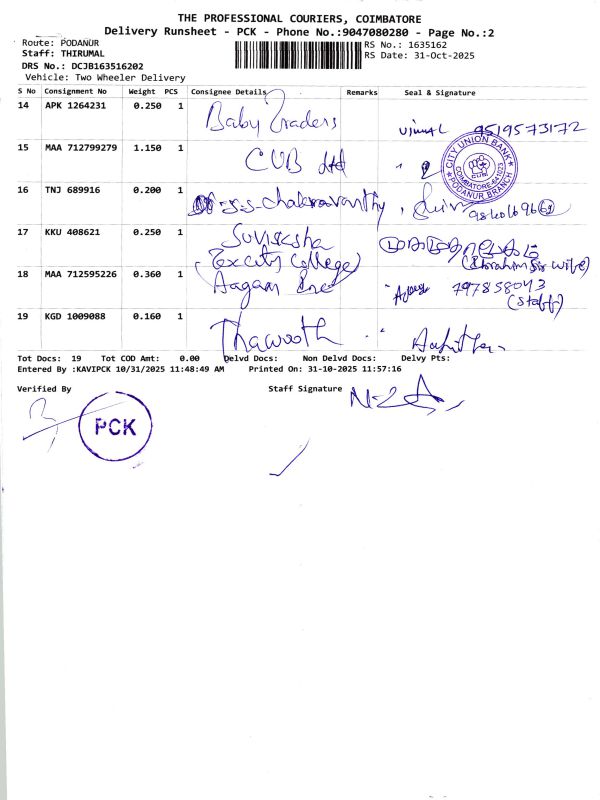 THE PROFESSIONAL COURIERS, COIMBATORE
Delivery Runsheet - PCK - Phone No.:9047080280 - Page No.:2
Route: PODANUR
Staff: THIRUMAL
DRS No.: DCJB163516202
Vehicle: Two Wheeler Delivery
RS No.: 1635162
RS Date: 31-Oct-2025
S No Consignment No Weight PCS Consignee Details Remarks Seal & Signature
14 APK 1264231 0.250 1 Baby Traders Vimal 9519573172
15 MAA 712799279 1.150 1 CUB Ltd
CITY UNION BANK
COIMBATORE
CUB
PODANUR BRANCH
16 TNJ 689916 0.200 1 S.S. Chakravarthy,
17 KKU 408621 0.250 1
(Texcity College)
(Ebrahim Sir wife)
18 MAA 712595226 0.360 1 Aagam Inc
(Staff)
19 KGD 1009088 0.160 1 Thawooth
Tot Docs: 19 Tot COD Amt: 0.00 Delvd Docs: Non Delvd Docs: Delvy Pts:
Entered By :KAVIPCK 10/31/2025 11:48:49 AM Printed On: 31-10-2025 11:57:16
Verified By Staff Signature
PCK